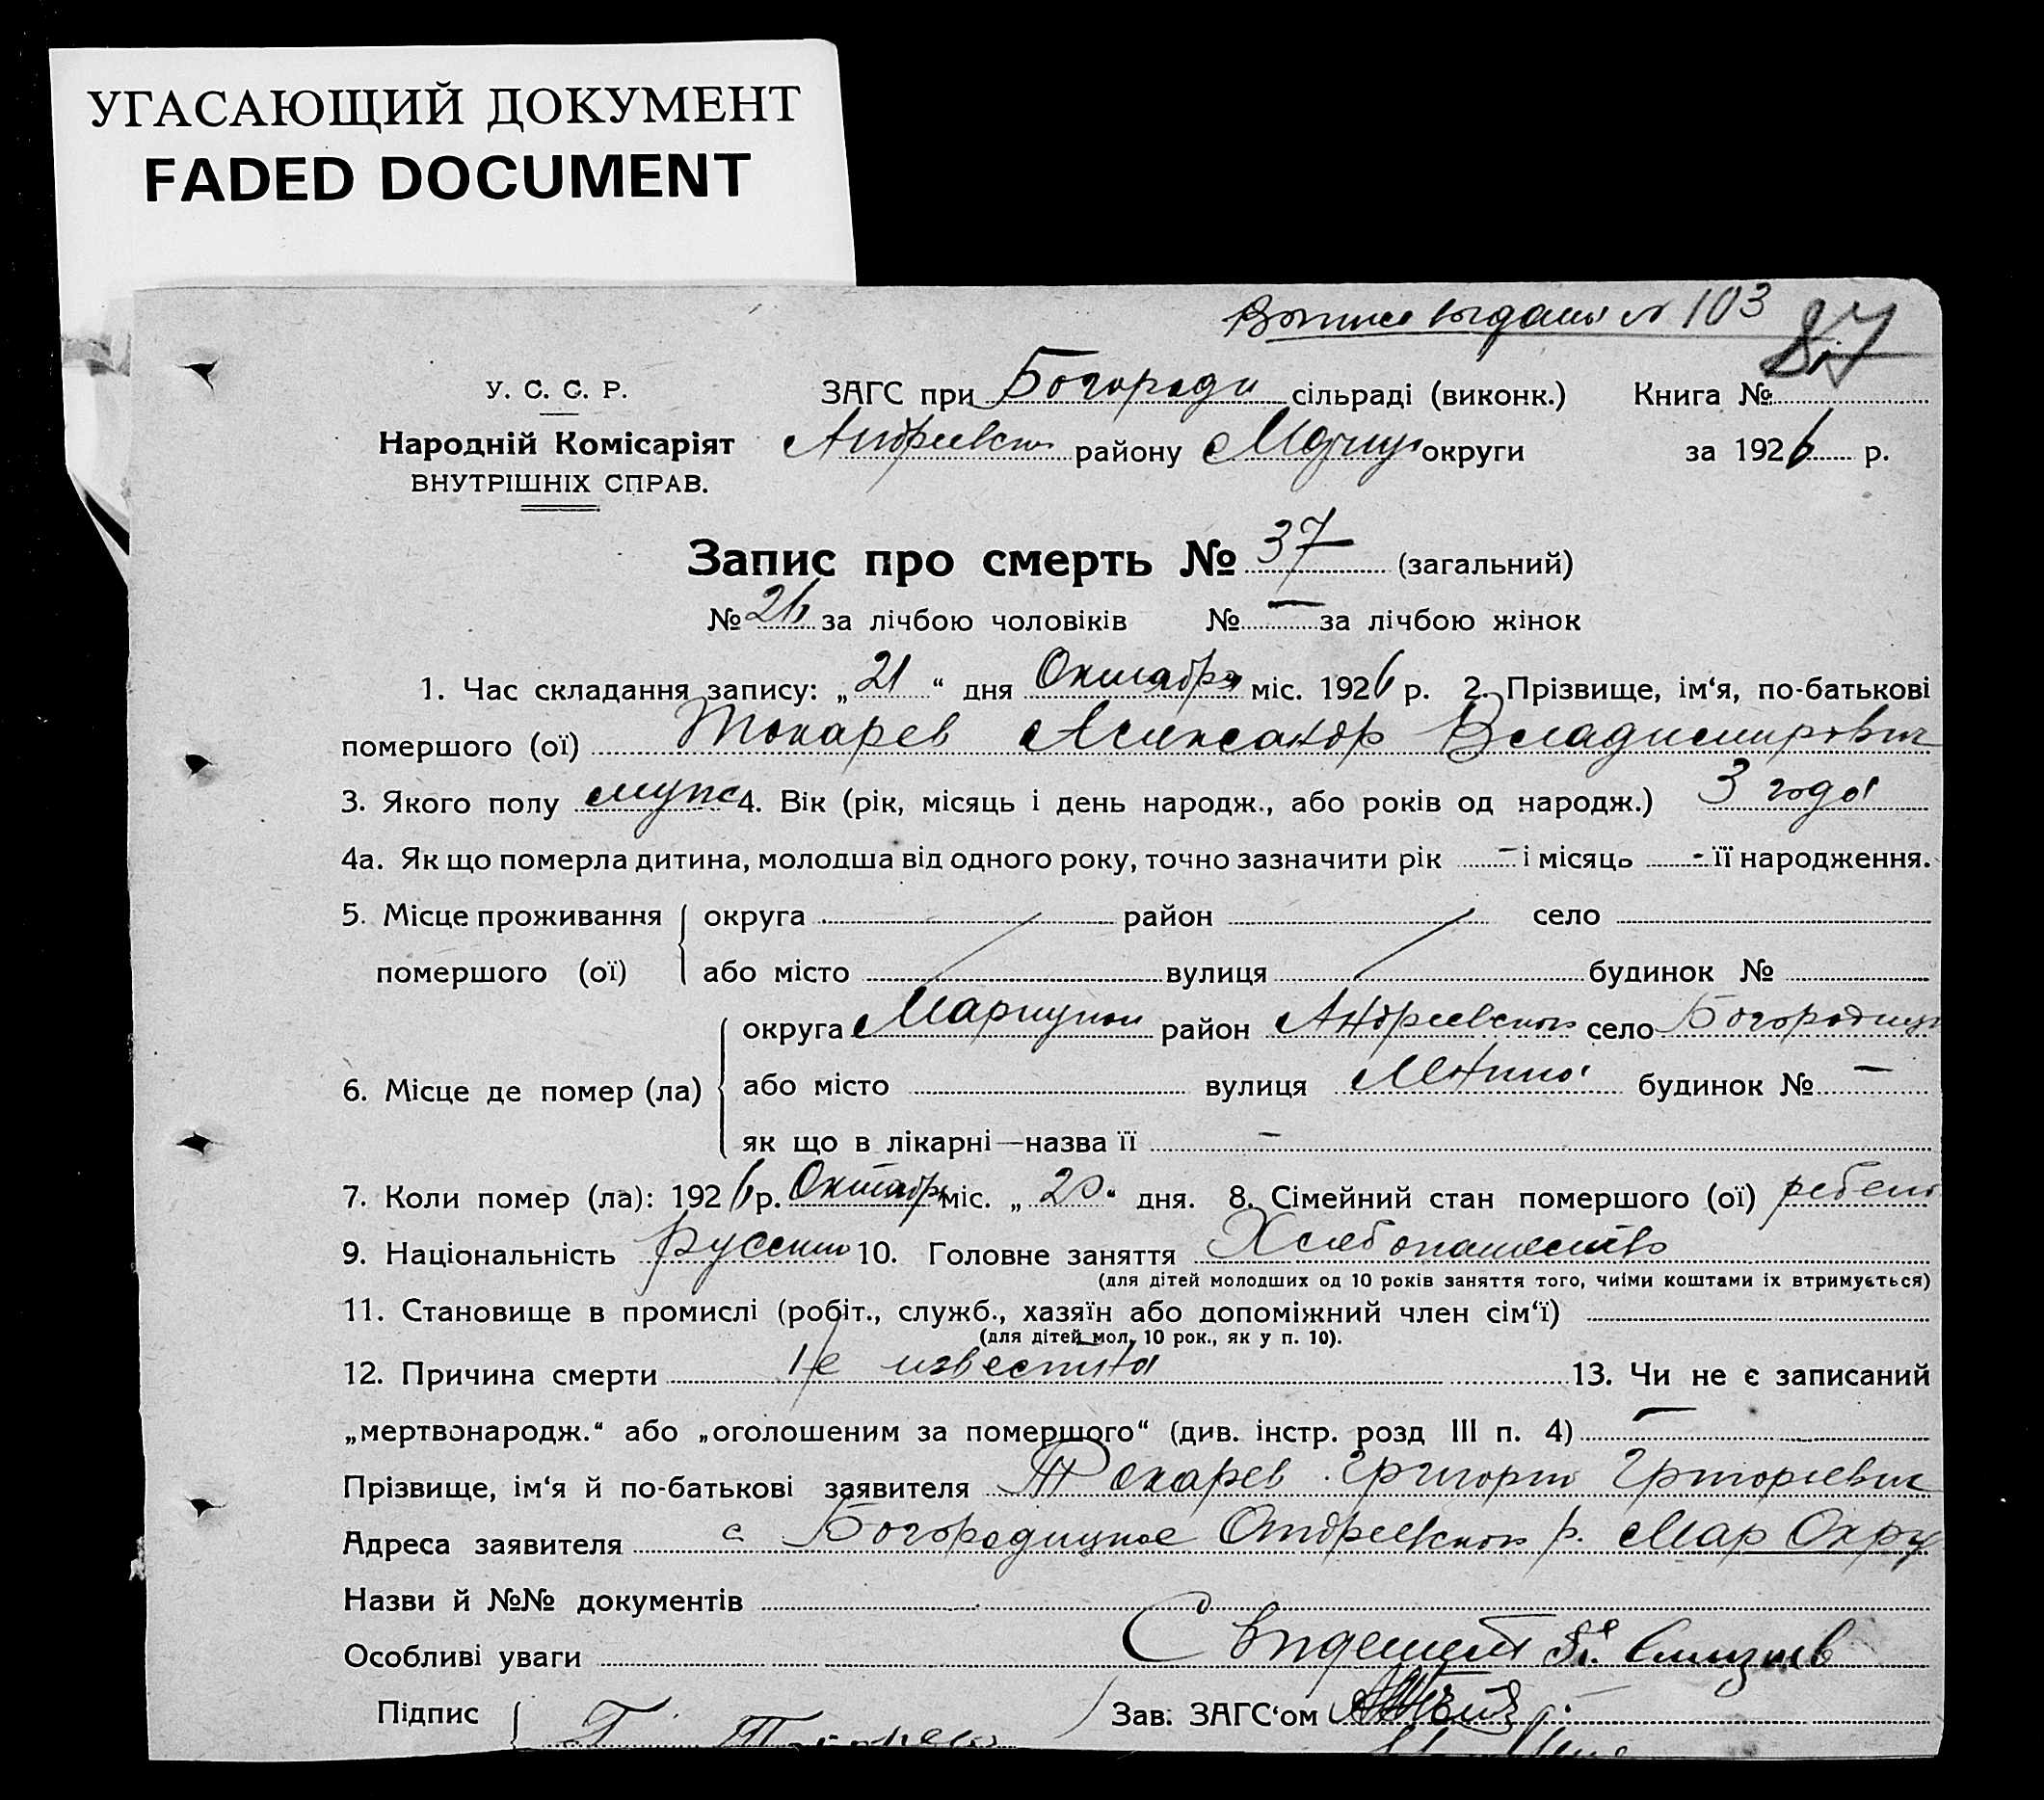 УГАСАЮЩИЙ ДОКУМЕНТ
FADED DOCUMENT
выдана № 103
87
У. С. С. Р.
ЗАГС при Богороди сільраді (виконк.) Книга №
Народній Комісаріят
Андреевск району Мариуп округи за 1926 р.
ВНУТРІШНІХ СПРАВ.
Запис про смерть № 37 (загальний)
№ 26 за лічбою чоловіків № — за лічбою жінок
1. Час складання запису: „21“ дня Октября міс. 1926 р. 2. Прізвище, ім‘я, по-батькові
помершого (ої) Токарев Александр Владимирович
3. Якого полу муж 4. Вік (рік, місяць і день народж., або років од народж.) 3 года
4а. Як що померла дитина, молодша від одного року, точно зазначити рік - і місяць - її народження.
5. Місце проживання округа район село
помершого (ої) або місто вулиця будинок №
округа Мариупол район Андреевского село Богородицк
6. Місце де помер (ла) або місто вулиця Ленина будинок № —
як що в лікарні—назва її —
7. Коли помер (ла): 1926 р. Октября міс. „20“ дня. 8. Сімейний стан помершого (ої) ребен
9. Національність русский 10. Головне заняття Хлебопашество
(для дітей молодших од 10 років заняття того, чиїми коштами їх втримується)
11. Становище в промислі (робіт., служб., хазяїн або допоміжний член сім‘ї)
(для дітей мол. 10 рок., як у п. 10).
12. Причина смерти Не известна 13. Чи не є записаний
„мертвонародж.“ або „оголошеним за померщого“ (див. інстр. розд III п. 4) —
Прізвище, ім‘я й по-батькові заявителя Токарев Григорий Григориевич
Адреса заявителя с Богородицкое Андреевского р. Мар Окру
Назви й №№ документів
Особливі уваги
Підпис Зав. ЗАГС‘ом